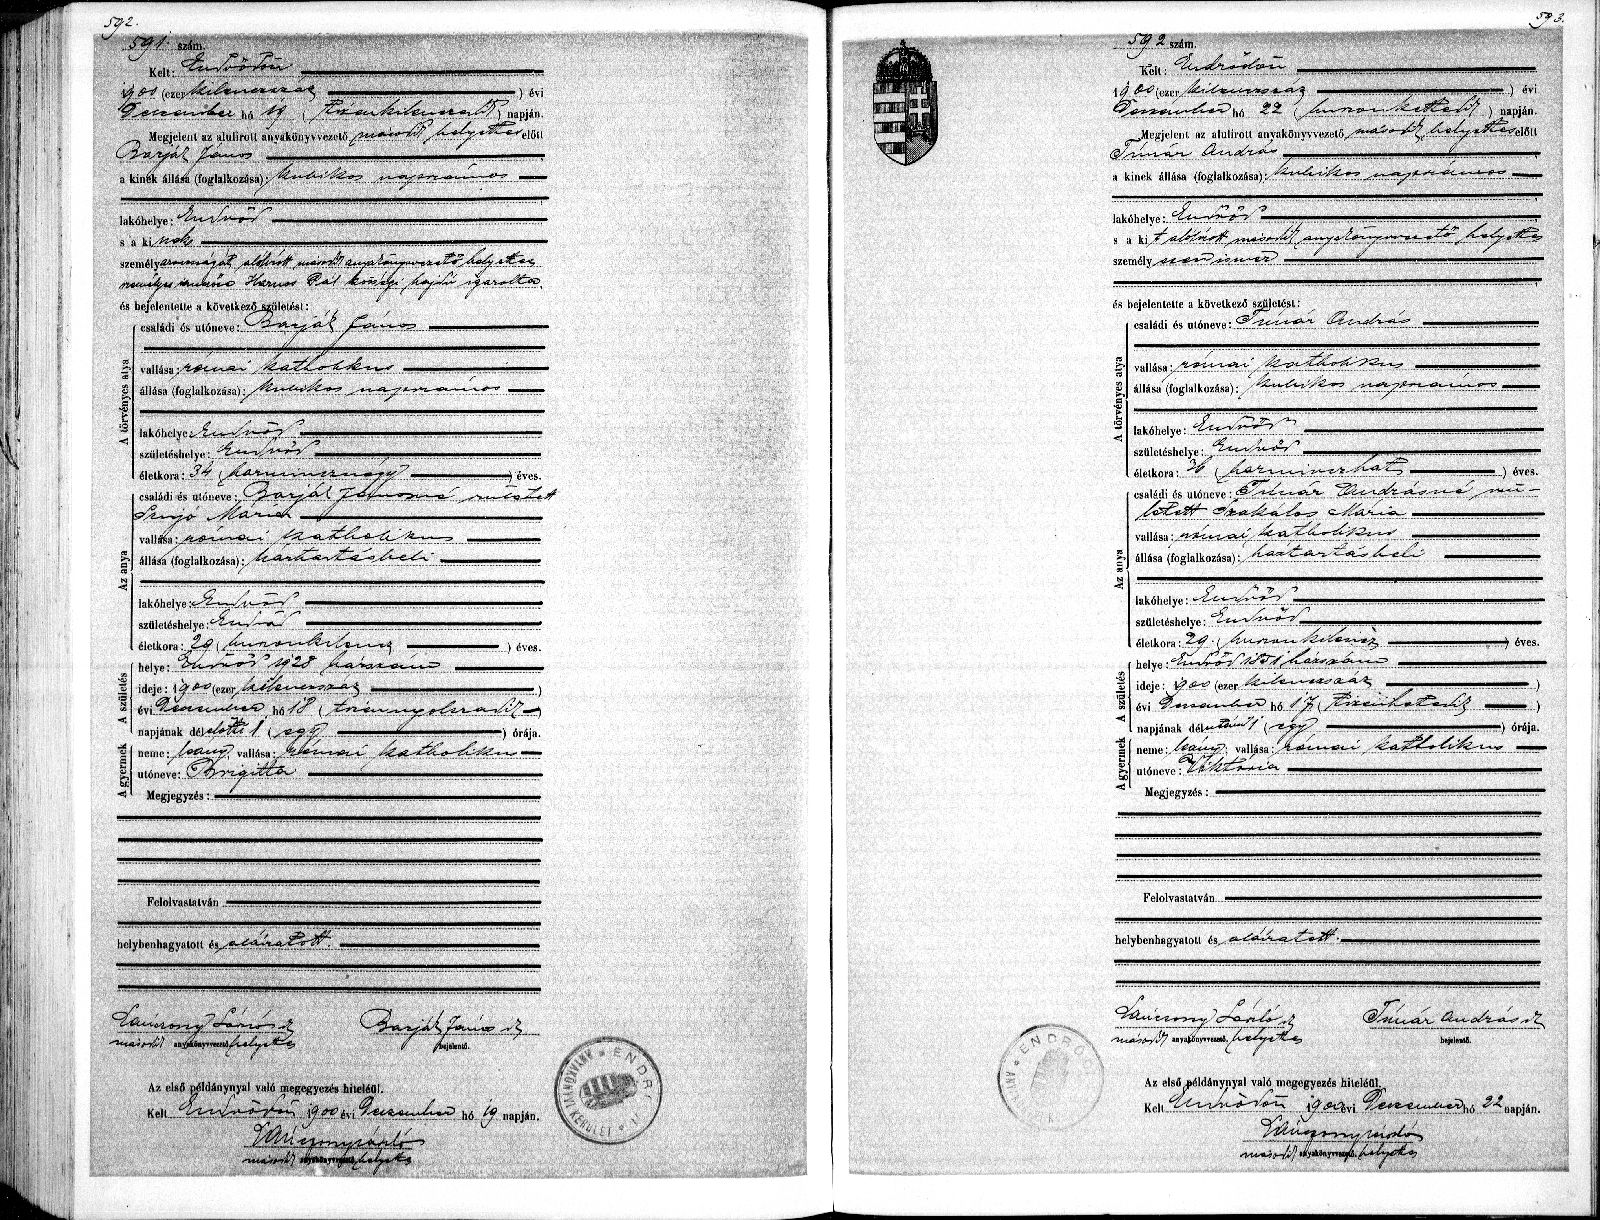 592.
591 szám.
Kelt: Endrődön
1900 (ezer kilenczszáz ) évi
Deczember hó 19 (tizenkilenczedik ) napján.
Megjelent az alulirott anyakönyvvezető, második helyettes előtt
Barják János
a kinek állása (foglalkozása): kubikos napszámos
lakóhelye: Endrőd
s a ki nek
személyazonosságát alólirott második anyakönyvvezető helyettes
Hornos Pál községi hajdú igazolta
és bejelentette a következő születést:
A törvényes atya
családi és utóneve: Barják János
vallása: római katholikus
állása (foglalkozása): kubikos napszámos
lakóhelye: Endrőd
születéshelye: Endrőd
életkora: 34 (harmincznégy ) éves.
Az anya
családi és utóneve: Barják Jánosné született
Mária
vallása: római katholikus
állása (foglalkozása): háztartásbeli
lakóhelye: Endrőd
születéshelye: Endrőd
életkora: 29 (huszonkilencz ) éves.
A születés
helye: Endrőd 1928 házszám
ideje: 1900 (ezer kilenczszáz )
évi Deczember hó 18 (tizennyolczadik )
napjának délelőtti 1 (egy ) órája.
A gyermek
neme: leány, vallása: római katholikus
utóneve: Brigitta
Megjegyzés:
Felolvastatván
helybenhagyatott és aláiratott.
Lánczony László sk Barják János sk
második anyakönyvvezető helyettes bejelentő.
Az első példánynyal való megegyezés hiteléül.
Kelt Endrődön 1900 évi Deczember hó 19 napján.
Lánczony László
második anyakönyvvezető helyettes
ENDRŐD
ANYAKÖNYVI KERÜLET
593.
592 szám.
Kelt: Endrődön
1900 (ezer kilenczszáz ) évi
Deczember hó 22 (huszonkettedik ) napján.
Megjelent az alulirott anyakönyvvezető, második helyettes előtt
Tímár András
a kinek állása (foglalkozása): kubikos napszámos
lakóhelye: Endrőd
s a ki t alólirott második anyakönyvvezető helyettes
személy esen ismer
és bejelentette a következő születést:
A törvényes atya
családi és utóneve: Tímár András
vallása: római katholikus
állása (foglalkozása): kubikos napszámos
lakóhelye: Endrőd
születéshelye: Endrőd
életkora: 36 (harminczhat ) éves.
Az anya
családi és utóneve: Tímár Andrásné szü-
letett Szakálos Maria
vallása: római katholikus
állása (foglalkozása): háztartásbeli
lakóhelye: Endrőd
születéshelye: Endrőd
életkora: 29. (huszonkilencz ) éves.
A születés
helye: Endrőd 1851 házszám
ideje: 1900 (ezer kilenczszáz )
évi Deczember hó 17 (tizenhetedik )
napjának délutáni 1 (egy ) órája.
A gyermek
neme: leány, vallása: római katholikus
utóneve: Viktória
Megjegyzés:
Felolvastatván
helybenhagyatott és aláiratott.
Lánczony László sk Tímár András sk
második anyakönyvvezető, helyettes bejelentő.
Az első példánynyal való megegyezés hiteléül.
Kelt Endrődön 1900 évi Deczember hó 22 napján.
Lánczony László
második anyakönyvvezető, helyettes
ENDRŐD